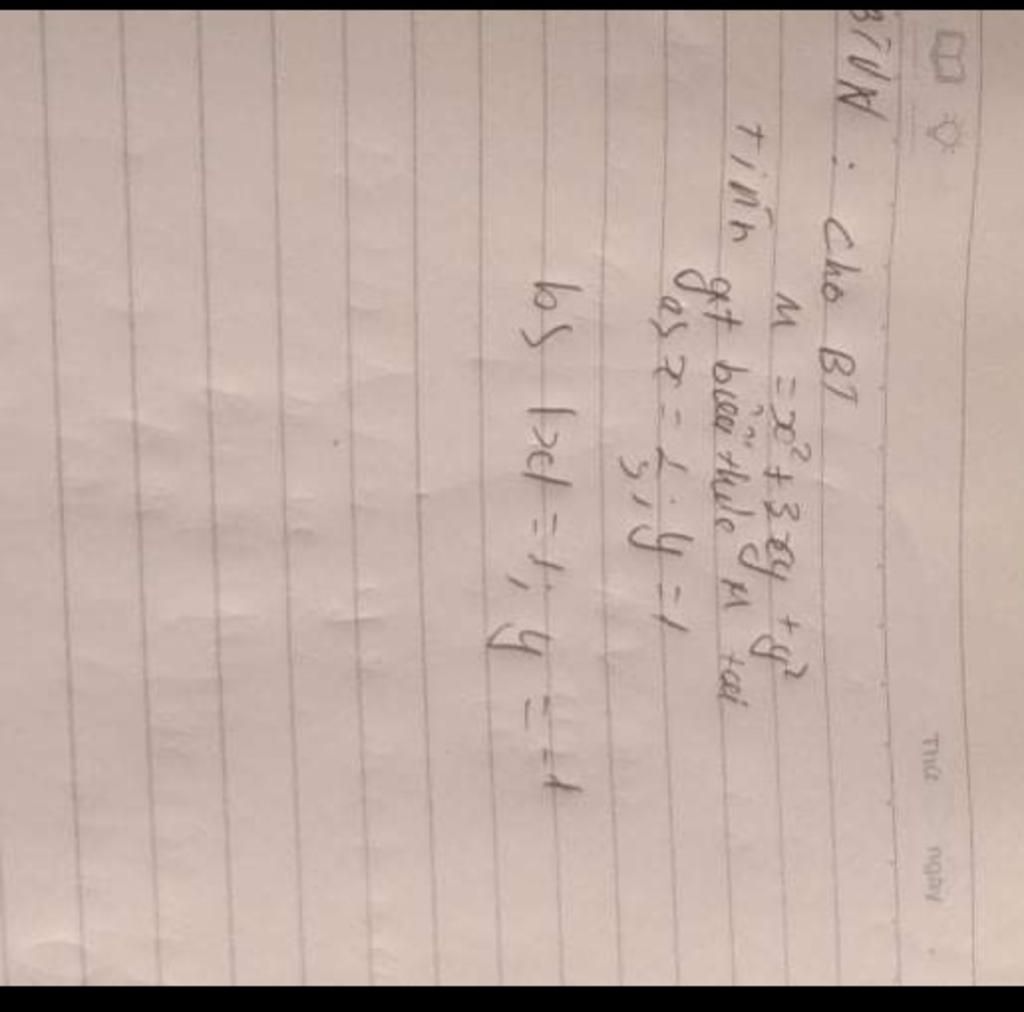 Thứ ngày
BTVN : Cho BT
M = x² + 3xy + y²
tính gt biểu thức M tại
a, x = 1/3 ; y = 1
b, |x| = 1 ; y = -1